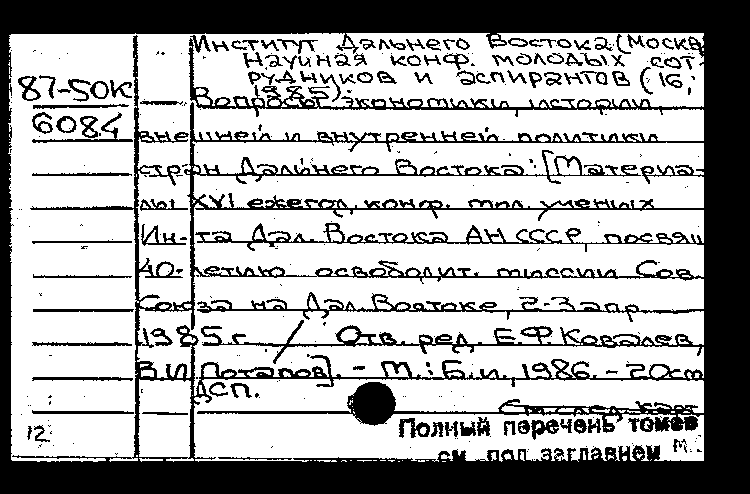 Институт Дальнего Востока (Москва
Научная конф. молодых сот-
рудников и аспирантов (16;
1985).
87-50К
Вопросы экономики, истории,
6084
внешней и внутренней политики
стран Дальнего Востока: [Материа-
лы XVI ежегод. конф. мол. ученых
Ин-та Дал. Востока АН СССР, посвящ
40-летию освободит. миссии Сов.
Союза на Дал. Востоке, 2-3 апр.
1985 г. / Отв. ред. Е.Ф. Ковалев,
В.И. Потапов]. - М.: Б.и., 1986. - 20см
ДСП.
См. след. карт
12
Полный перечень томов
см. под заглавием М